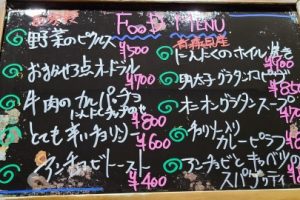 FOOD MENU
野菜のピクルス
¥500
おまかせ3点オードブル
¥700
牛肉のカルパッチョ
¥800
とても辛いチョリソー
¥600
アンチョビトースト
¥400
青森県産
にんにくのホイル焼き
明太子グラタン
オニオングラタンスープ
チョリソー入り
カレーピラフ
アンチョビとキャベツ
スパゲッティ